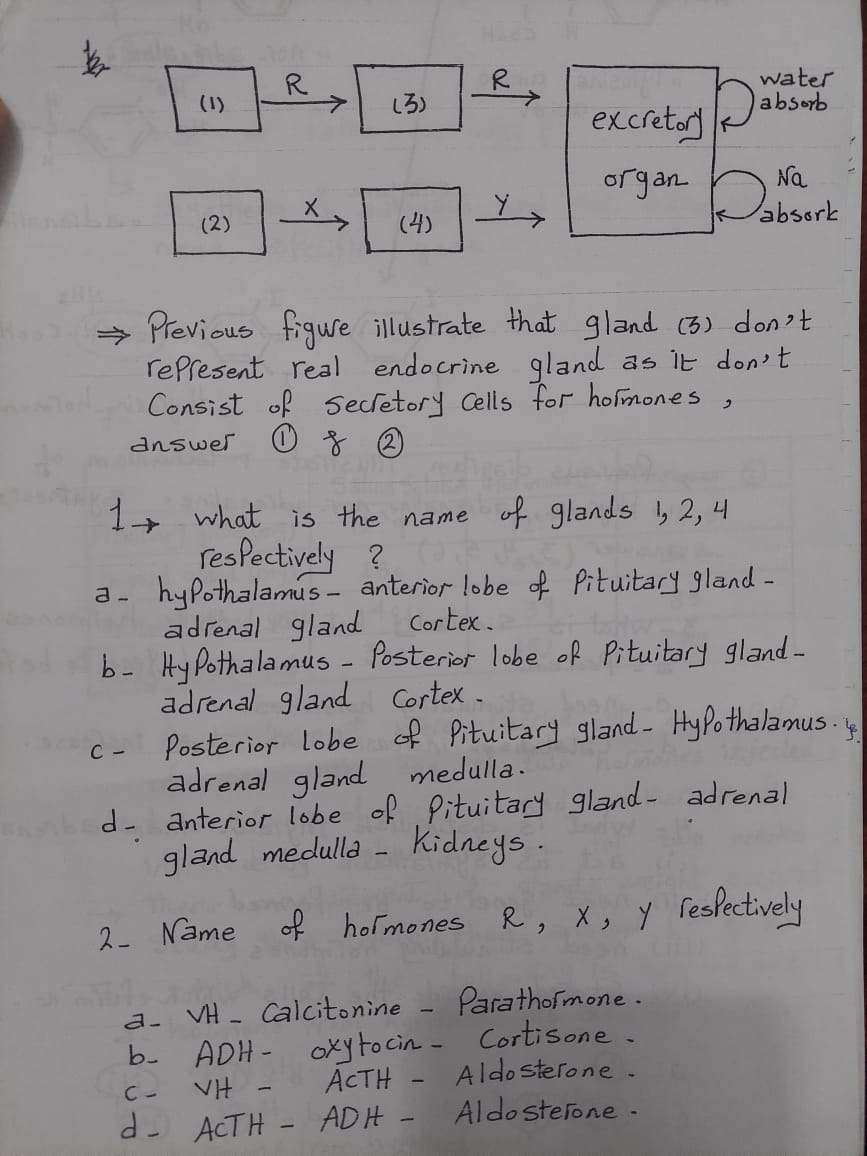 (1) R (3) R water
absorb
excretory
organ
Na
absorb
(2) X (4) Y
⇒ Previous figure illustrate that gland (3) don't
represent real endocrine gland as it don't
Consist of secretory cells for hormones ,
answer ① & ②
1→ what is the name of glands 1, 2, 4
respectively ?
a - hypothalamus - anterior lobe of Pituitary gland -
adrenal gland cortex.
b - Hypothalamus - Posterior lobe of Pituitary gland -
adrenal gland Cortex -
c - Posterior lobe of Pituitary gland - Hypothalamus.
adrenal gland medulla.
d - anterior lobe of Pituitary gland - adrenal
gland medulla - Kidneys.
2 - Name of hormones R, X, Y respectively
a - VH - Calcitonine - Parathormone .
b - ADH - oxytocin - Cortisone .
c - VH - AcTH - Aldosterone .
d - AcTH - ADH - Aldosterone .